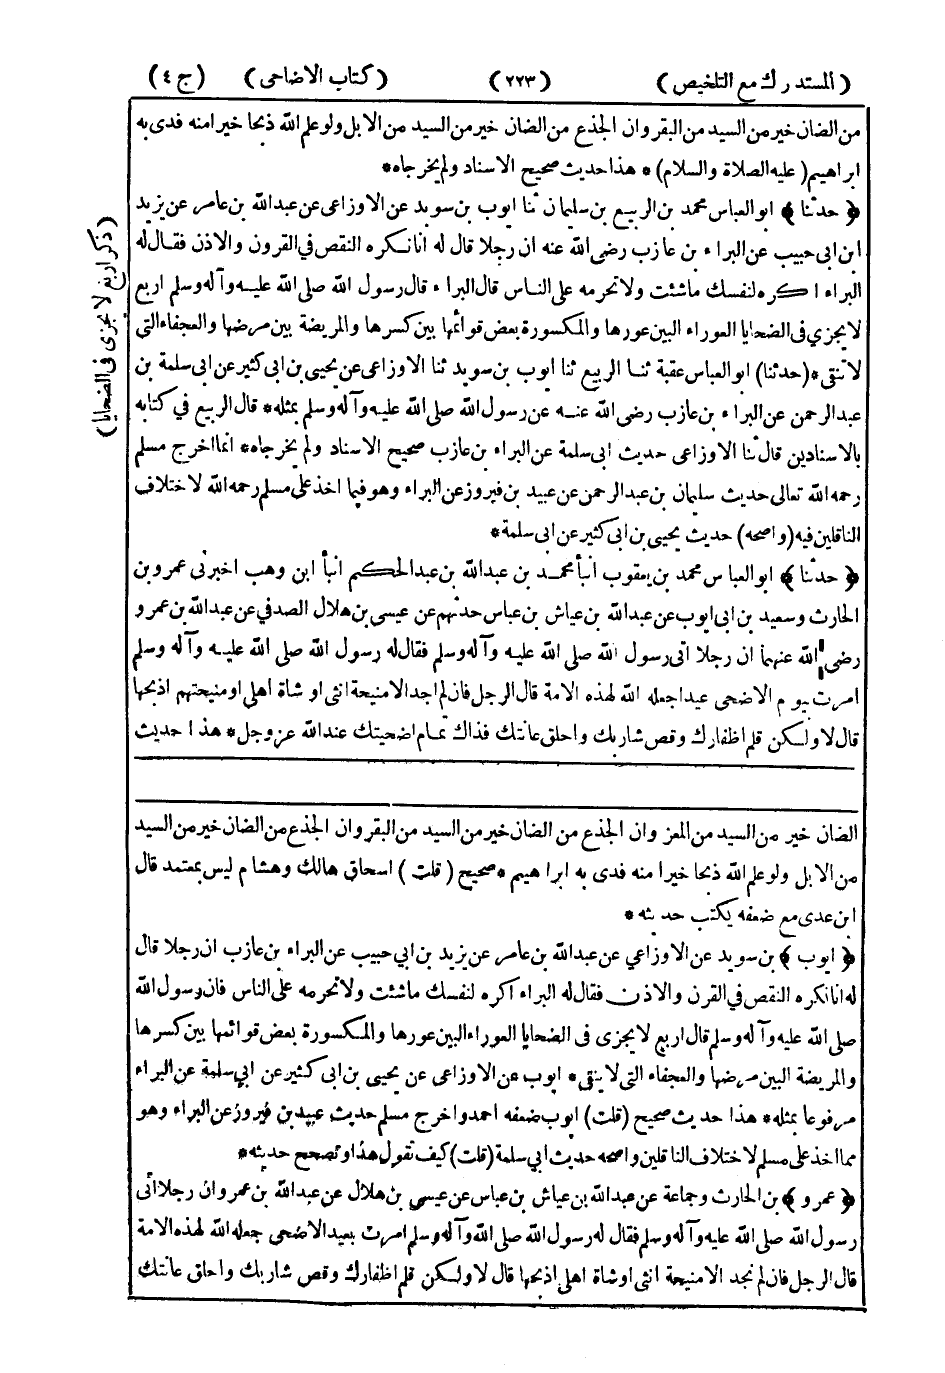 (المستدرك مع التلخيص) (٢٢٣) (كتاب الاضاحى) (ج ٤)
من الضان خير من السيد من البقر وان الجذع من الضان خير من السيد من الابل ولو علم الله ذبحا خيرا منه فدى به
ابراهيم (عليه الصلاة والسلام) * هذا حديث صحيح الاسناد ولم يخرجاه *
﴿ حدثنا ﴾ ابو العباس محمد بن الربيع بن سليمان ثنا ايوب بن سويد عن الاوزاعى عن عبدالله بن عامر عن يزيد
ابن ابى حبيب عن البراء بن عازب رضى الله عنه ان رجلا قال له انا نكره النقص فى القرون والاذن فقال له
البراء اكره لنفسك ماشئت ولا تحرمه على الناس قال البراء قال رسول الله صلى الله عليه وآله وسلم اربع
لا يجزي فى الضحايا العوراء البين عورها والمكسورة بعض قوائمها بين كسرها والمريضة بين مرضها والعجفاء التى
لا تنقى * (حدثنا) ابو العباس عقبة ثنا الربيع ثنا ايوب بن سويد ثنا الاوزاعى عن يحيى بن ابى كثير عن ابى سلمة بن
عبد الرحمن عن البراء بن عازب رضى الله عنه عن رسول الله صلى الله عليه وآله وسلم بمثله * قال الربيع فى كتابه
بالاسنادين قال ثنا الاوزاعى حديث ابى سلمة عن البراء بن عازب صحيح الاسناد ولم يخرجاه * انما اخرج مسلم
رحمه الله تعالى حديث سليمان بن عبد الرحمن عن عبيد بن فيروز عن البراء وهو فيما اخذ على مسلم رحمه الله لاختلاف
الناقلين فيه (واصحه) حديث يحيى بن ابى كثير عن ابى سلمة *
﴿ حدثنا ﴾ ابو العباس محمد بن يعقوب انبأ محمد بن عبد الله بن عبد الحكيم انبأ ابن وهب اخبرنى عمرو بن
الحارث وسعيد بن ابى ايوب عن عبدالله بن عياش بن عباس حدثهم عن عيسى بن هلال الصدفي عن عبدالله بن عمرو
رضى الله عنهما ان رجلا اتى رسول الله صلى الله عليه وآله وسلم فقال له رسول الله صلى الله عليه وآله وسلم
امرت بيوم الاضحى عيدا جعله الله لهذه الامة قال الرجل فان لم اجد الا منيحة انثى او شاة اهلى او منيحتهم اذبحها
قال لا ولكن قلم اظفارك وقص شاربك واحلق عانتك فذاك تمام اضحيتك عند الله عز وجل * هذا حديث
(ذكر اربع لا يجزى فى الضحايا)
الضان خير من السيد من المعز وان الجذع من الضان خير من السيد من البقر وان الجذع من الضان خير من السيد
من الابل ولو علم الله ذبحا خيرا منه فدى به ابراهيم * صحيح (قلت) اسحاق هالك وهشام ليس بمعتمد قال
ابن عدى مع ضعفه يكتب حديثه *
﴿ ايوب ﴾ بن سويد عن الاوزاعي عن عبدالله بن عامر عن يزيد بن ابي حبيب عن البراء بن عازب ان رجلا قال
له انا نكره النقص في القرن والاذن فقال له البراء اكره لنفسك ماشئت ولا تحرمه على الناس فان رسول الله
صلى الله عليه وآله وسلم قال اربع لا يجزى فى الضحايا العوراء البين عورها والمكسورة بعض قوائمها بين كسرها
والمريضة البين مرضها والعجفاء التى لا ينقى * ايوب عن الاوزاعى عن يحيى بن ابى كثير عن ابي سلمة عن البراء
مرفوعا بمثله * هذا حديث صحيح (قلت) ايوب ضعفه احمد واخرج مسلم حديث عبيد بن فيروز عن البراء وهو
مما اخذ على مسلم لاختلاف الناقلين واصحه حديث ابي سلمة (قلت) كيف تقول هذا وتصحح حديثه *
﴿ عمرو ﴾ بن الحارث وجماعة عن عبدالله بن عياش بن عباس عن عيسى بن هلال عن عبدالله بن عمرو ان رجلا اتى
رسول الله صلى الله عليه وآله وسلم فقال له رسول الله صلى الله وآله وسلم امرت بعيد الاضحى جعله الله لهذه الامة
قال الرجل فان لم نجد الا منيحة انثى او شاة اهلى اذبحها قال لا ولكن قلم اظفارك وقص شاربك واحلق عانتك